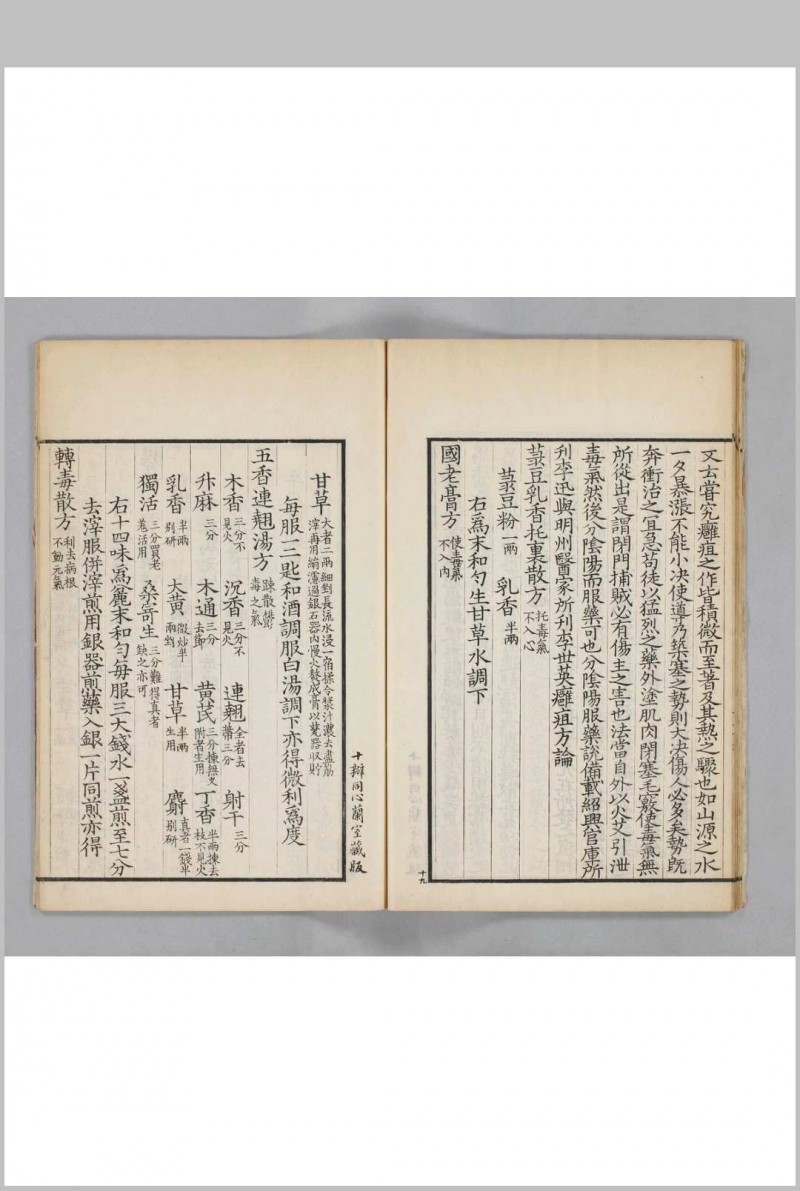 又云嘗究癰疽之作皆積微而至著及其熱之驟也如山源之水
一夕暴漲不能小决使導乃築塞之勢則大决傷人必多矣勢旣
奔衝治之宜急苟徒以猛烈之藥外塗肌肉閉塞毛竅使毒氣無
所從出是謂閉門捕賊必有傷主之害也法當自外以火艾引泄
毒氣然後分陰陽而服藥可也分陰陽服藥說備載紹興官庫所
刋李迅與明州醫家所刋李世英癰疽方論
菉豆乳香托裏散方 托毒氣不入心
菉豆粉 一兩 乳香 半兩
右爲末和勻生甘草水調下
國老膏方 使毒氣不入內
十九
甘草 大者二兩細剉長流水浸一宿揉令漿汁濃去盡筋滓再用絹濾過銀石器內慢火熬成膏以甆器收貯
每服一二匙和酒調服白湯調下亦得微利爲度
五香連翹湯方 疎散鬱毒之氣
木香 三分不見火 沉香 三分不見火 連翹 全者去蒂三分 射干 三分
升麻 三分 木通 三分去節 黄芪 三分揀無叉附者生用 丁香 半兩揀去枝不見火
乳香 半兩別研 大黄 微炒半兩剉 甘草 半兩生用 麝 真者一錢半别研
獨活 三分買老羗活用 桑寄生 三分難得真者缺之亦可
右十四味爲麄末和勻每服三大錢水一盞煎至七分
去滓服併滓煎用銀器煎藥入銀一片同煎亦得
轉毒散方 利去病根不動元氣
十瓣同心蘭室藏版